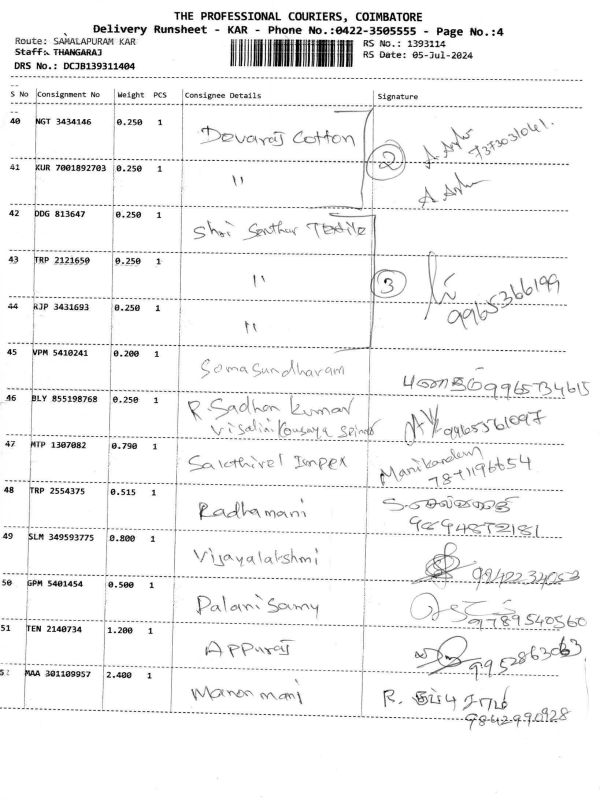 THE PROFESSIONAL COURIERS, COIMBATORE
Delivery Runsheet - KAR - Phone No.:0422-3505555 - Page No.:4
Route: SAMALAPURAM KAR
RS No.: 1393114
Staff: THANGARAJ
RS Date: 05-Jul-2024
DRS No.: DCJB139311404
S No Consignment No Weight PCS Consignee Details Signature
40 NGT 3434146 0.250 1 Devaraj Cotton 2
41 KUR 7001892703 0.250 1 "
42 DDG 813647 0.250 1 Shri Senthur Textile
43 TRP 2121650 0.250 1 " 3 9965366199
44 RJP 3431693 0.250 1 "
45 VPM 5410241 0.200 1 Somasundharam 9965734615
46 BLY 855198768 0.250 1 R. Sadhan Kumar
9965561097
47 MTP 1307082 0.790 1 Sakthivel Impex Manikandan
7871196654
48 TRP 2554375 0.515 1 Radhamani
9894872181
49 SLM 349593775 0.800 1 Vijayalakshmi
50 GPM 5401454 0.500 1 Palanisamy 9789540560
51 TEN 2140734 1.200 1 Appuraj
MAA 301109957 2.400 1 Manonmani R.